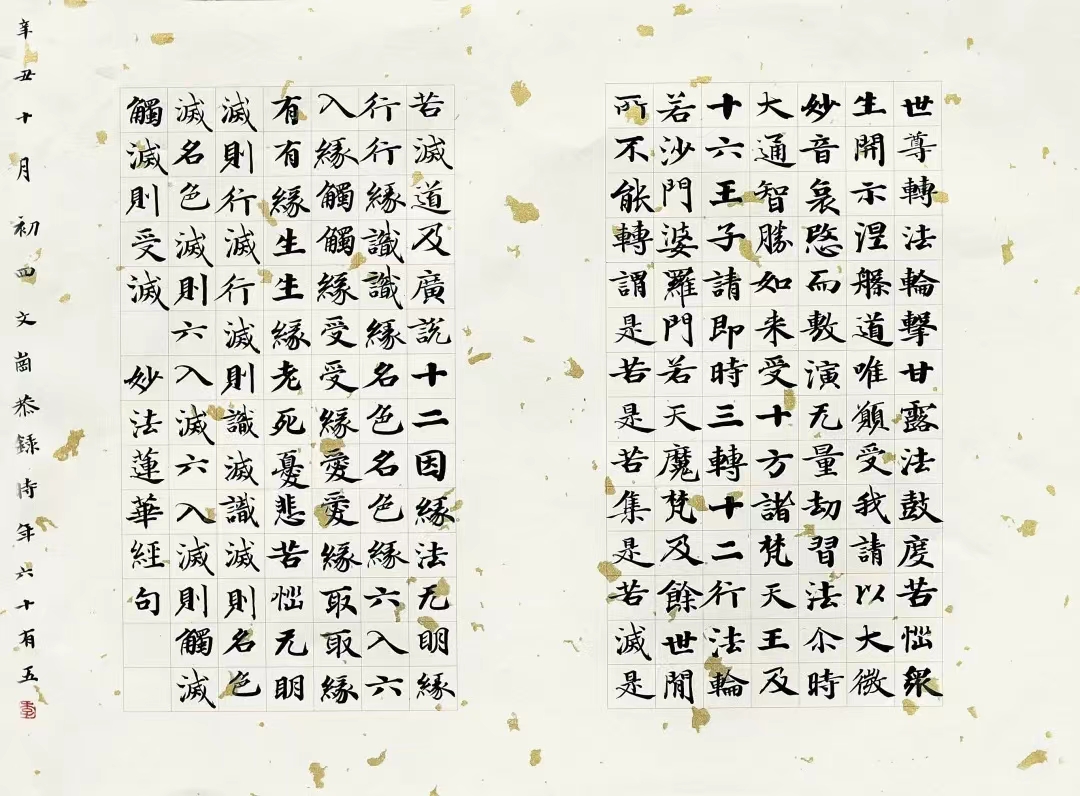 世尊轉法輪擊甘露法鼓度苦惱眾
生開示涅槃道唯願受我請以大微
妙音哀愍而敷演无量劫習法尒時
大通智勝如来受十方諸梵天王及
十六王子請即時三轉十二行法輪
若沙門婆羅門若天魔梵及餘世間
所不能轉謂是苦是苦集是苦滅是
苦滅道及廣説十二因緣法无明緣
行行緣識識緣名色名色緣六入六
入緣觸觸緣受受緣愛愛緣取取緣
有有緣生生緣老死憂悲苦惱无明
滅則行滅行滅則識滅識滅則名色
滅名色滅則六入滅六入滅則觸滅
觸滅則受滅 妙法蓮華經句
辛丑十月初四文崗恭録時年六十有五